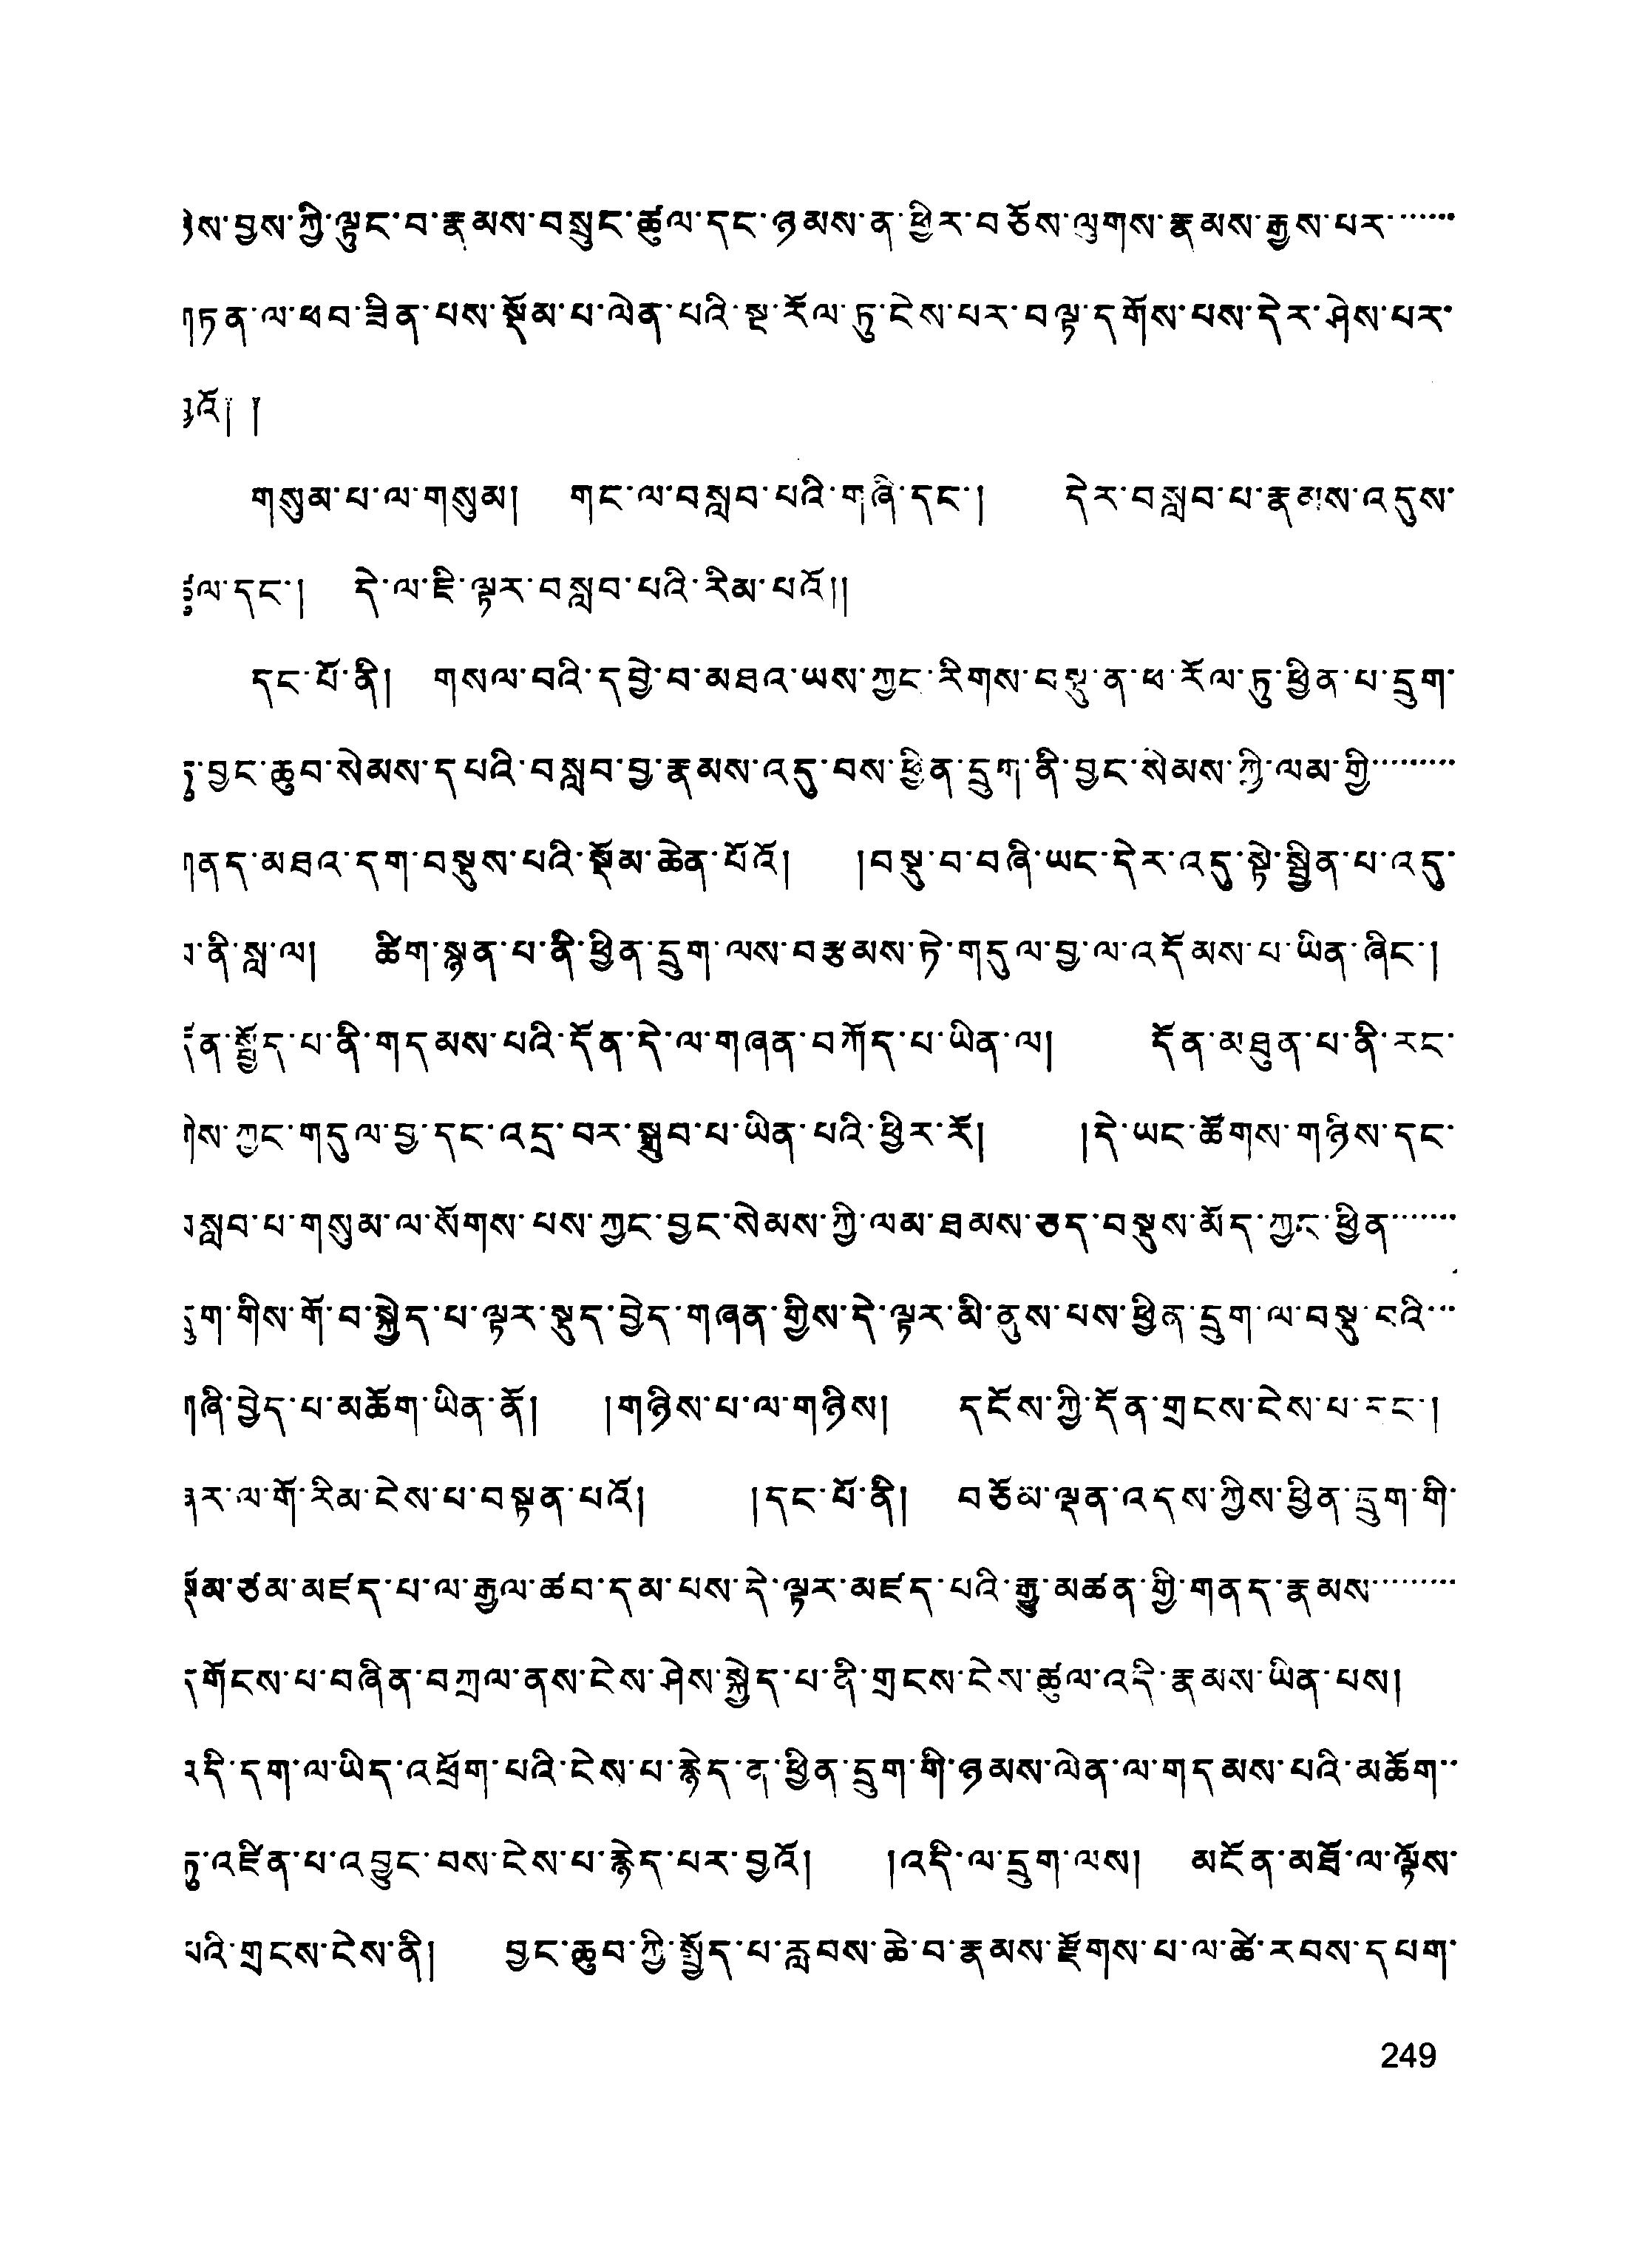 ཉེས་བྱས་ཀྱི་ལྟུང་བ་རྣམས་བསྲུང་ཚུལ་དང་ཉམས་ན་ཕྱིར་བཅོས་ལུགས་རྣམས་རྒྱས་པར་་་་་་་
གཏན་ལ་ཕབ་ཟིན་པས་སྡོམ་པ་ལེན་པའི་སྔ་རོལ་ཏུ་ངེས་པར་བལྟ་དགོས་པས་དེར་ཤེས་པར་
བྱའོ། །
གསུམ་པ་ལ་གསུམ། གང་ལ་བསླབ་པའི་གཞི་དང་། དེར་བསླབ་པ་རྣམས་འདུས་
ཚུལ་དང་། དེ་ལ་ཇི་ལྟར་བསླབ་པའི་རིམ་པའོ།།
དང་པོ་ནི། གསལ་བའི་དབྱེ་བ་མཐའ་ཡས་ཀྱང་རིགས་བསྡུ་ན་ཕ་རོལ་ཏུ་ཕྱིན་པ་དྲུག་
ཏུ་བྱང་ཆུབ་སེམས་དཔའི་བསླབ་བྱ་རྣམས་འདུ་བས་ཕྱིན་དྲུག་ནི་བྱང་སེམས་ཀྱི་ལམ་གྱི་་་་་་་་་
གནད་མཐའ་དག་བསྡུས་པའི་སྡོམ་ཆེན་པོའོ། །བསྡུ་བ་བཞི་ཡང་དེར་འདུ་སྟེ་སྦྱིན་པ་འདུ་
བ་ནི་སླ་ལ། ཚིག་སྙན་པ་ནི་ཕྱིན་དྲུག་ལས་བརྩམས་ཏེ་གདུལ་བྱ་ལ་འདོམས་པ་ཡིན་ཞིང་།
དོན་སྤྱོད་པ་ནི་གདམས་པའི་དོན་དེ་ལ་གཞན་བཀོད་པ་ཡིན་ལ། དོན་མཐུན་པ་ནི་རང་
གིས་ཀྱང་གདུལ་བྱ་དང་འདྲ་བར་སྒྲུབ་པ་ཡིན་པའི་ཕྱིར་རོ། །དེ་ཡང་ཚོགས་གཉིས་དང་
བསླབ་པ་གསུམ་ལ་སོགས་པས་ཀྱང་བྱང་སེམས་ཀྱི་ལམ་ཐམས་ཅད་བསྡུས་མོད་ཀྱང་ཕྱིན་་་་་་་
དྲུག་གིས་གོ་བ་སྐྱེད་པ་ལྟར་སྡུད་བྱེད་གཞན་གྱིས་དེ་ལྟར་མི་ནུས་པས་ཕྱིན་དྲུག་ལ་བསྡུ་བའི་་་
གཞི་བྱེད་པ་མཆོག་ཡིན་ནོ། །གཉིས་པ་ལ་གཉིས། དངོས་ཀྱི་དོན་གྲངས་ངེས་པ་དང་།
ཞར་ལ་གོ་རིམ་ངེས་པ་བསྟན་པའོ། །དང་པོ་ནི། བཅོམ་ལྡན་འདས་ཀྱིས་ཕྱིན་དྲུག་གི་
སྡོམ་ཙམ་མཛད་པ་ལ་རྒྱལ་ཚབ་དམ་པས་དེ་ལྟར་མཛད་པའི་རྒྱུ་མཚན་གྱི་གནད་རྣམས་་་་་་་་་
དགོངས་པ་བཞིན་བཀྲལ་ནས་ངེས་ཤེས་སྐྱེད་པ་ནི་གྲངས་ངེས་ཚུལ་འདི་རྣམས་ཡིན་པས།
འདི་དག་ལ་ཡིད་འཕྲོག་པའི་ངེས་པ་རྙེད་ན་ཕྱིན་དྲུག་གི་ཉམས་ལེན་ལ་གདམས་པའི་མཆོག་་
ཏུ་འཛིན་པ་འབྱུང་བས་ངེས་པ་རྙེད་པར་བྱའོ། །འདི་ལ་དྲུག་ལས། མངོན་མཐོ་ལ་ལྟོས་
པའི་གྲངས་ངེས་ནི། བྱང་ཆུབ་ཀྱི་སྤྱོད་པ་རླབས་ཆེ་བ་རྣམས་རྫོགས་པ་ལ་ཚེ་རབས་དཔག་
249